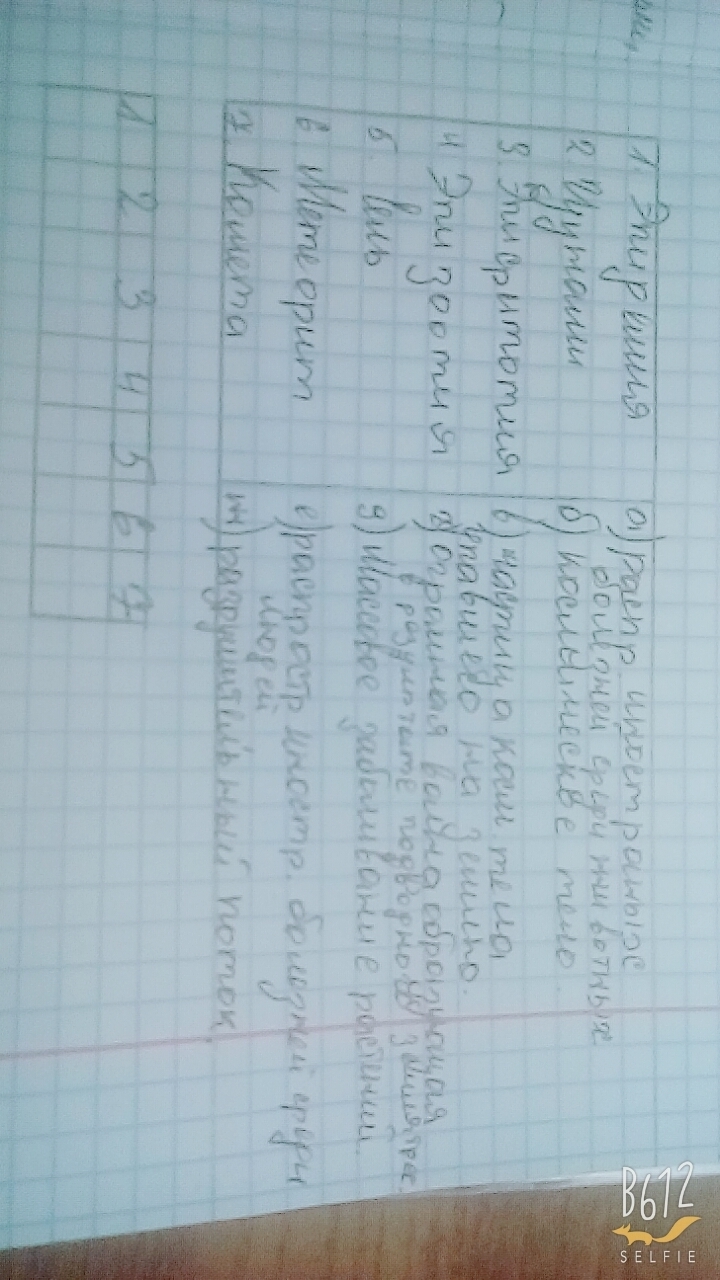 1. Эпидемия
2. Цунами
3. Эпифитотия
4 Эпизоотия
5. Сель
6. Метеорит
7. Комета
а) распр. иностранных
болезней среди животных
б) космическое тело.
в) частица косм тела
упавшего на землю.
г) огромная волна образующая
в результате подводного землятрс.
д) Массовое забаливание растений.
е) распростр иностр. болезней среди
людей
ж) разрушительный поток.
1 2 3 4 5 6 7
B612
SELFIE